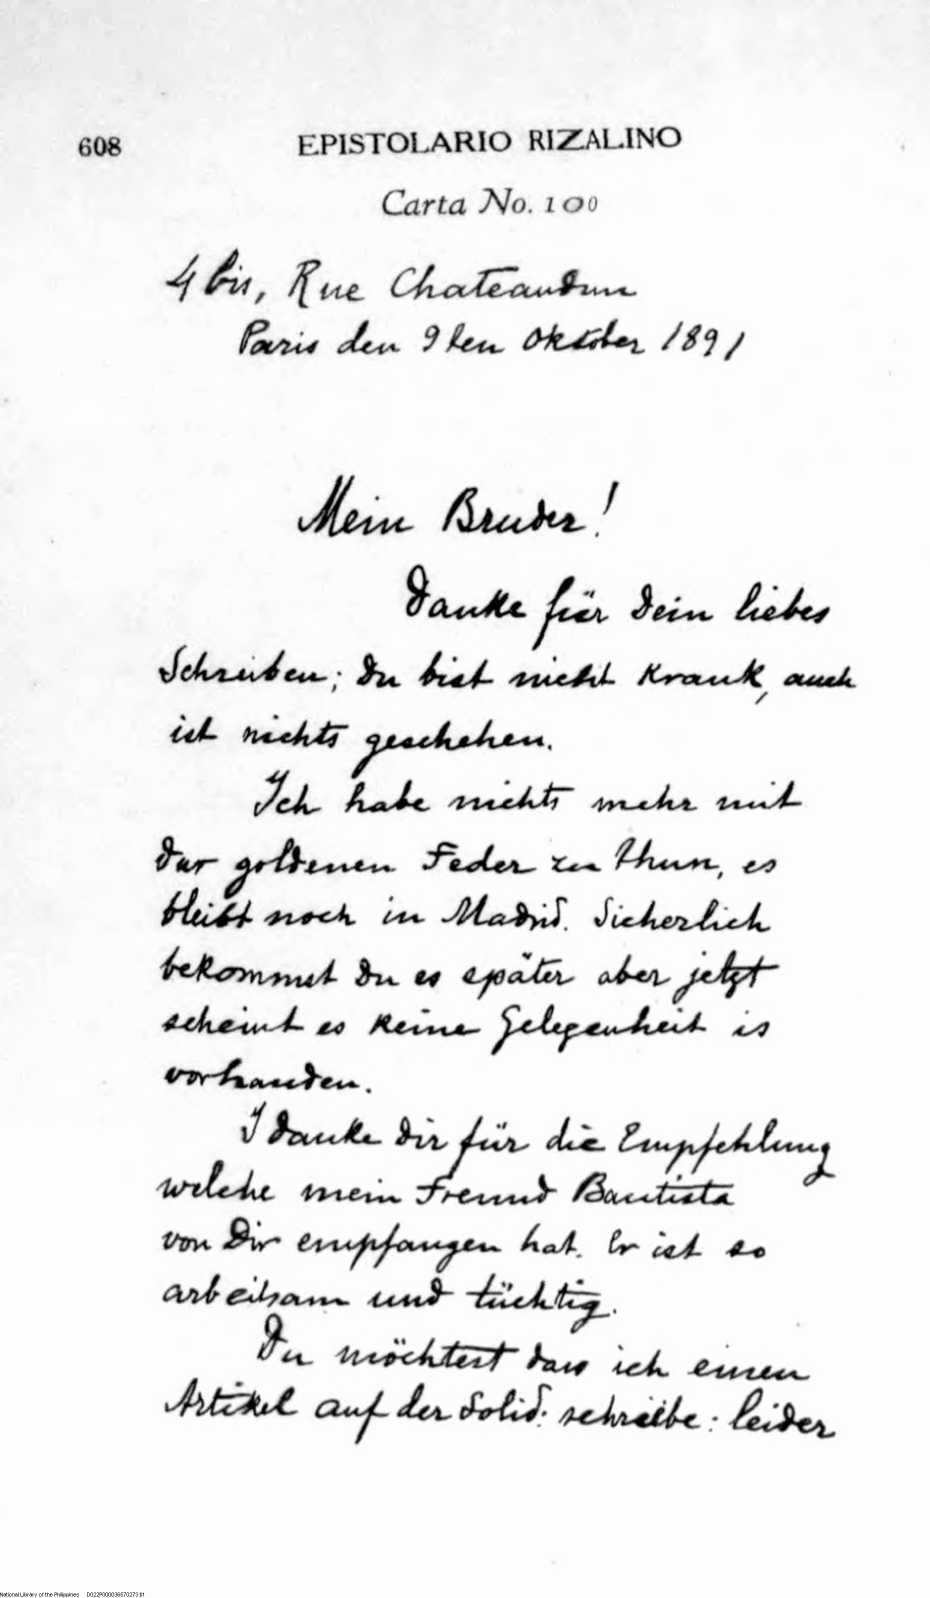 608 EPISTOLARIO RIZALINO
Carta No. 100
4 bis, Rue Chateaudun
Paris den 9ten Oktober 1891
Mein Bruder!
Danke für Dein liebes
Schreiben; Du bist nicht krank, auch
ist nichts geschehen.
Ich habe nichts mehr mit
der goldenen Feder zu thun, es
bleibt noch in Madrid. Sicherlich
bekommst Du es später aber jetzt
scheint es keine Gelegenheit is
vorhanden.
I danke Dir für die Empfehlung
welche mein Freund Bautista
von Dir empfangen hat. Er ist so
arbeitsam und tüchtig.
Du möchtest dass ich einen
Artikel auf der Solid: schreibe: leider
National Library of the Philippines